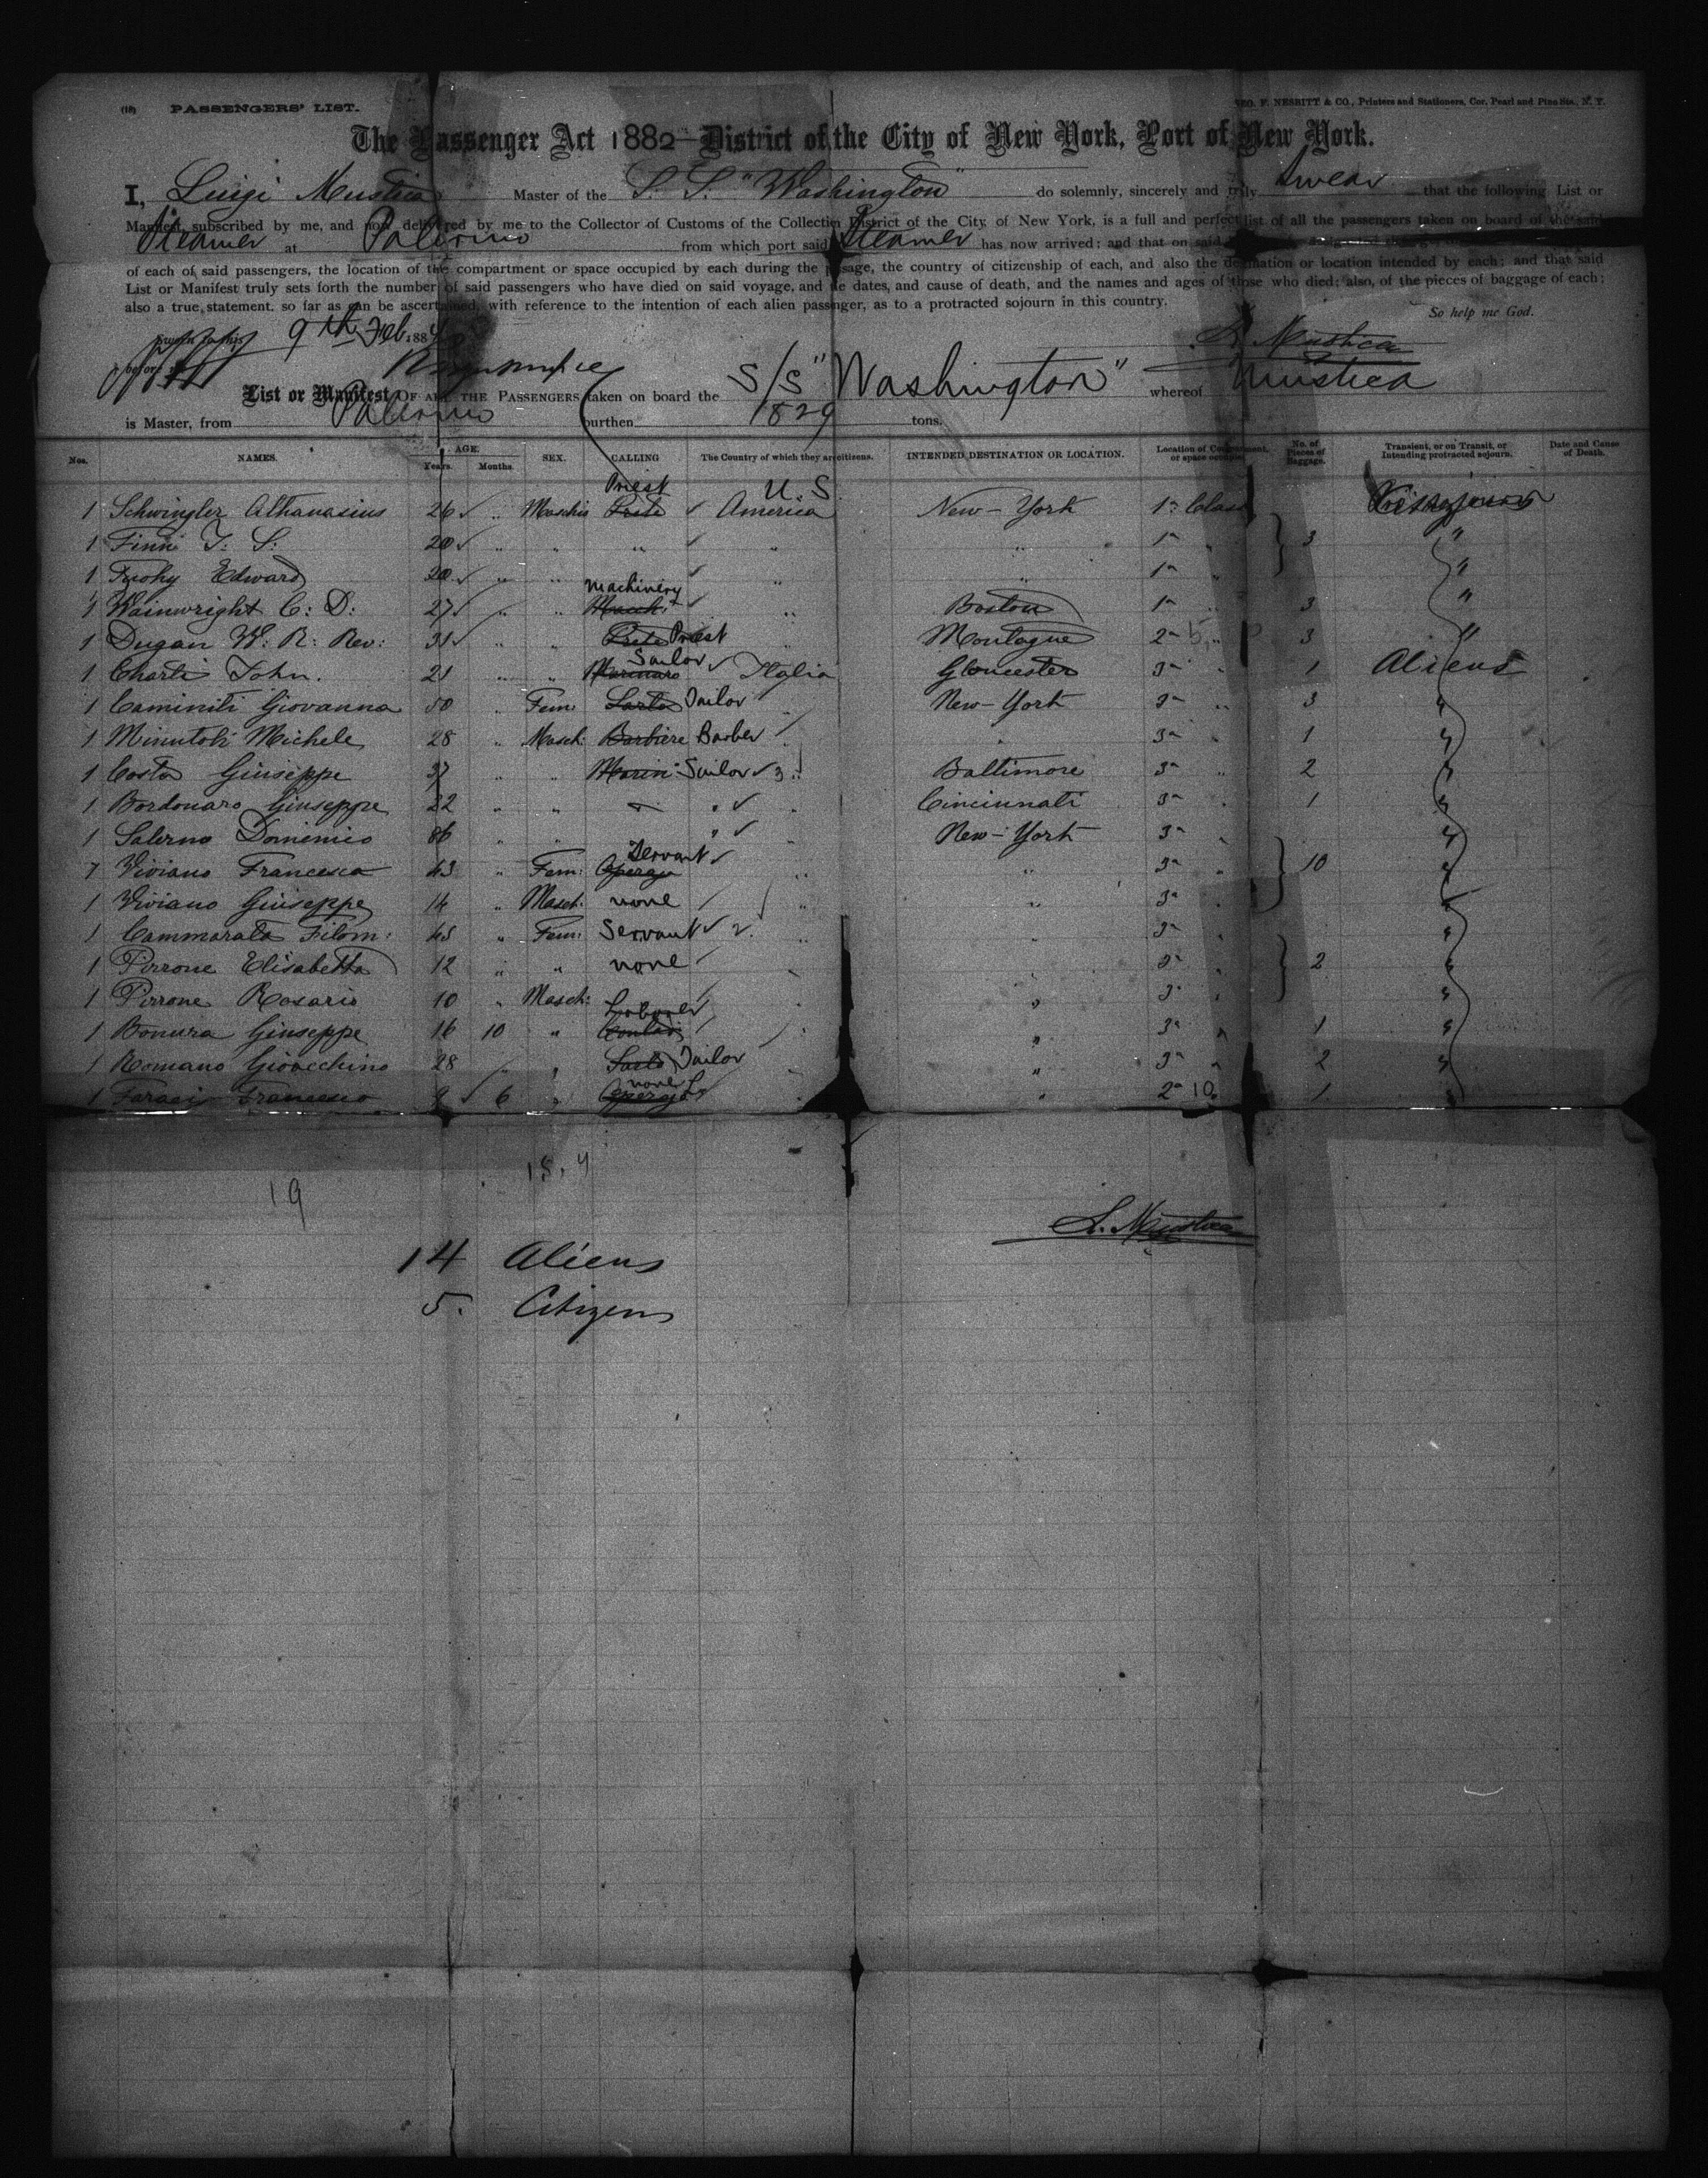 (18) PASSENGERS' LIST. GEO. F. NESBITT & CO., Printers and Stationers, Cor. Pearl and Pine Sts., N. Y.
The Passenger Act 1882—District of the City of New York, Port of New York.
I, Luigi Mustica Master of the S. S. "Washington" do solemnly, sincerely and truly swear that the following List or
Manifest, subscribed by me, and now delivered by me to the Collector of Customs of the Collection District of the City of New York, is a full and perfect list of all the passengers taken on board of the said
Steamer at Palermo from which port said Steamer has now arrived; and that on said
of each of said passengers, the location of the compartment or space occupied by each during the passage, the country of citizenship of each, and also the destination or location intended by each; and that said
List or Manifest truly sets forth the number of said passengers who have died on said voyage, and the dates, and cause of death, and the names and ages of those who died; also, of the pieces of baggage of each;
also a true statement, so far as can be ascertained, with reference to the intention of each alien passenger, as to a protracted sojourn in this country.
So help me God.
Sworn to this 9th Feb. 188
L. Mustica
before
List or Manifest OF ALL THE PASSENGERS taken on board the S/S "Washington" whereof Mustica
is Master, from Palermo burthen 1829 tons.
Nos. NAMES. AGE. Years. Months. SEX. CALLING The Country of which they are citizens. INTENDED DESTINATION OR LOCATION. Location of Compartment, or space occupied. No. of Pieces of Baggage. Transient, or on Transit, or Intending protracted sojourn. Date and Cause of Death.
Priest U. S.
1 Schwingler Athanasius 26 " Maschio Prete America New-York 1a Class
1 Finn T. S. 20 " " " " " 1a " 3 "
1 Fuohy Edward 20 " " " " 1a " "
machinery
1 Wainwright C: D: 27 " " Mach: " Boston 1a " 3 "
1 Dugan W: R: Rev: 31 " " Prete Priest " Montague 2a 5 " 3 "
Sailor
1 Charti John. 21 " " Marinaro Italia Gloucester 3a " 1 Aliens
1 Caminiti Giovanna 50 " Fem: Sarta Tailor " New-York 3a " 3 "
1 Minutoli Michele 28 " Masch: Barbiere Barber " " 3a " 1 "
1 Costa Giuseppe 37 " " Marin: Sailor 3 " Baltimore 3a " 2 "
1 Bordonaro Giuseppe 22 " " " " Cincinnati 3a " 1 "
1 Salerno Domenico 36 " " " " New-York 3a " "
Servant
1 Viviano Francesca 43 " Fem: Operaja " " 3a " 10 "
1 Viviano Giuseppe 14 " Masch: none " " 3a " "
1 Cammarata Filom: 45 " Fem: Servant 2. " " 3a " "
1 Pirrone Elisabetta 12 " " none " " 3a " 2 "
1 Pirrone Rosario 10 " Masch: " 3a " "
Laborer
1 Bonura Giuseppe 16 10 " Contad: " " 3a " 1 "
1 Romano Gioacchino 28 " " Sarto Tailor " " 3a " 2 "
none
1 Faraci Francesco 9 6 " Operajo " " 2a 10 1 "
19
L. Mustica
14 Aliens
5. Citizens